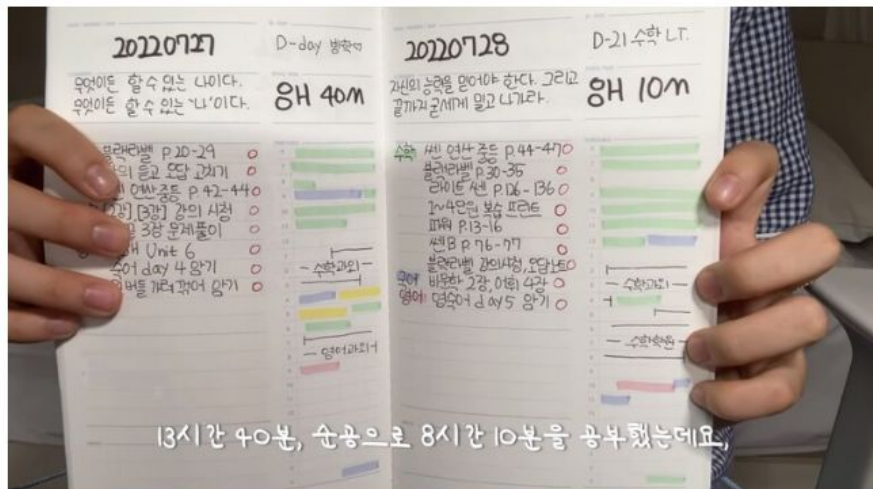 20220727
D-day 방학♡
무엇이든 할 수 있는 나이다.
무엇이든 할 수 있는 '나'이다.
8H 40M
블랙라벨 P.20-29
듣고 오답 고치기
연산 중등 P.42-44
[2강], [3강] 강의 시청
3강 문제풀이
Unit 6
숙어 day 4 암기
버들가려 꺾어 암기
- 수학과외 -
- 영어과외 -
20220728
D-21 수학 LT.
자신의 능력을 믿어야 한다. 그리고
끝까지 굳세게 밀고 나가라.
8H 10M
수학 쎈 연산 중등 P.44-47
블랙라벨 P.30-35
라이트 쎈 P.126-136
1~4단원 복습 프린트
파워 P.13-16
쎈B P.76-77
블랙라벨 강의시청, 오답노트
국어 비문학 2강, 어휘 4강
영어 영숙어 day 5 암기
- 수학과외 -
- 수학학원 -
13시간 40분, 순공으로 8시간 10분을 공부했는데요,